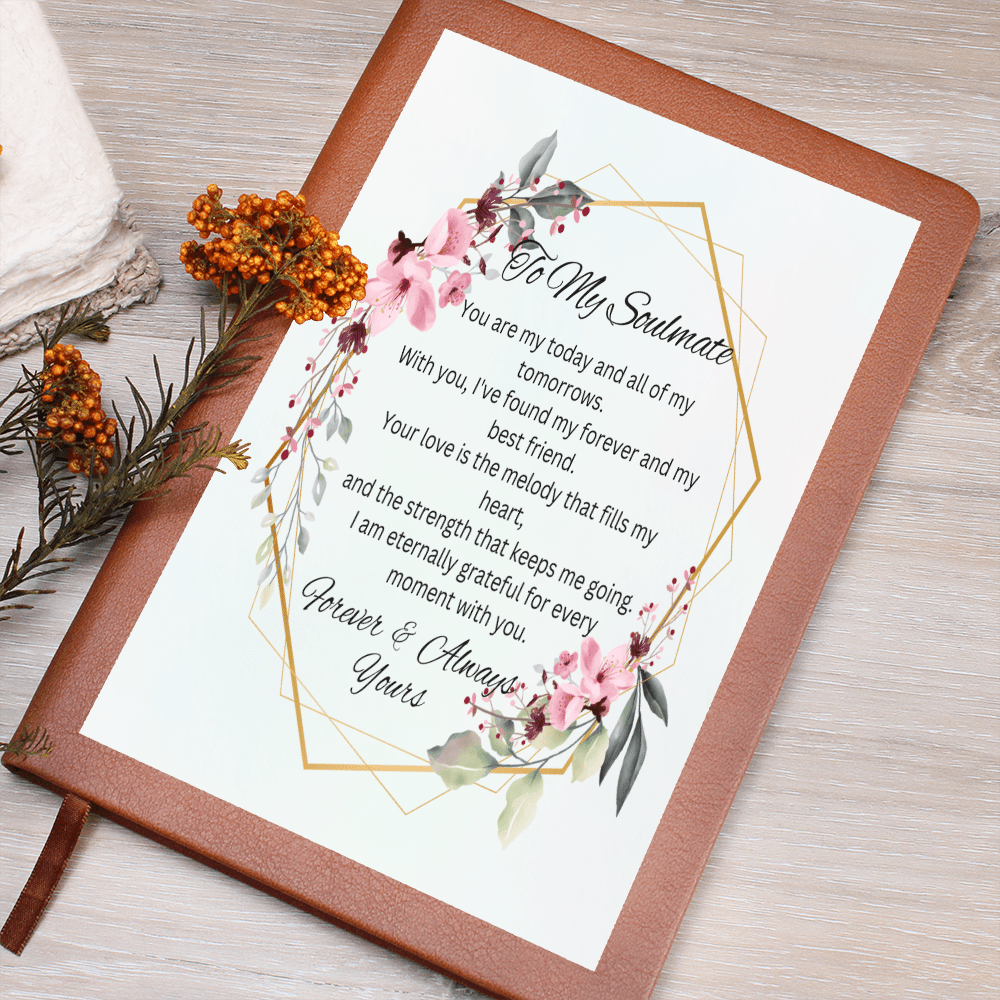 To My Soulmate
You are my today and all of my
tomorrows.
With you, I've found my forever and my
best friend.
Your love is the melody that fills my
heart,
and the strength that keeps me going.
I am eternally grateful for every
moment with you.
Forever & Always
Yours